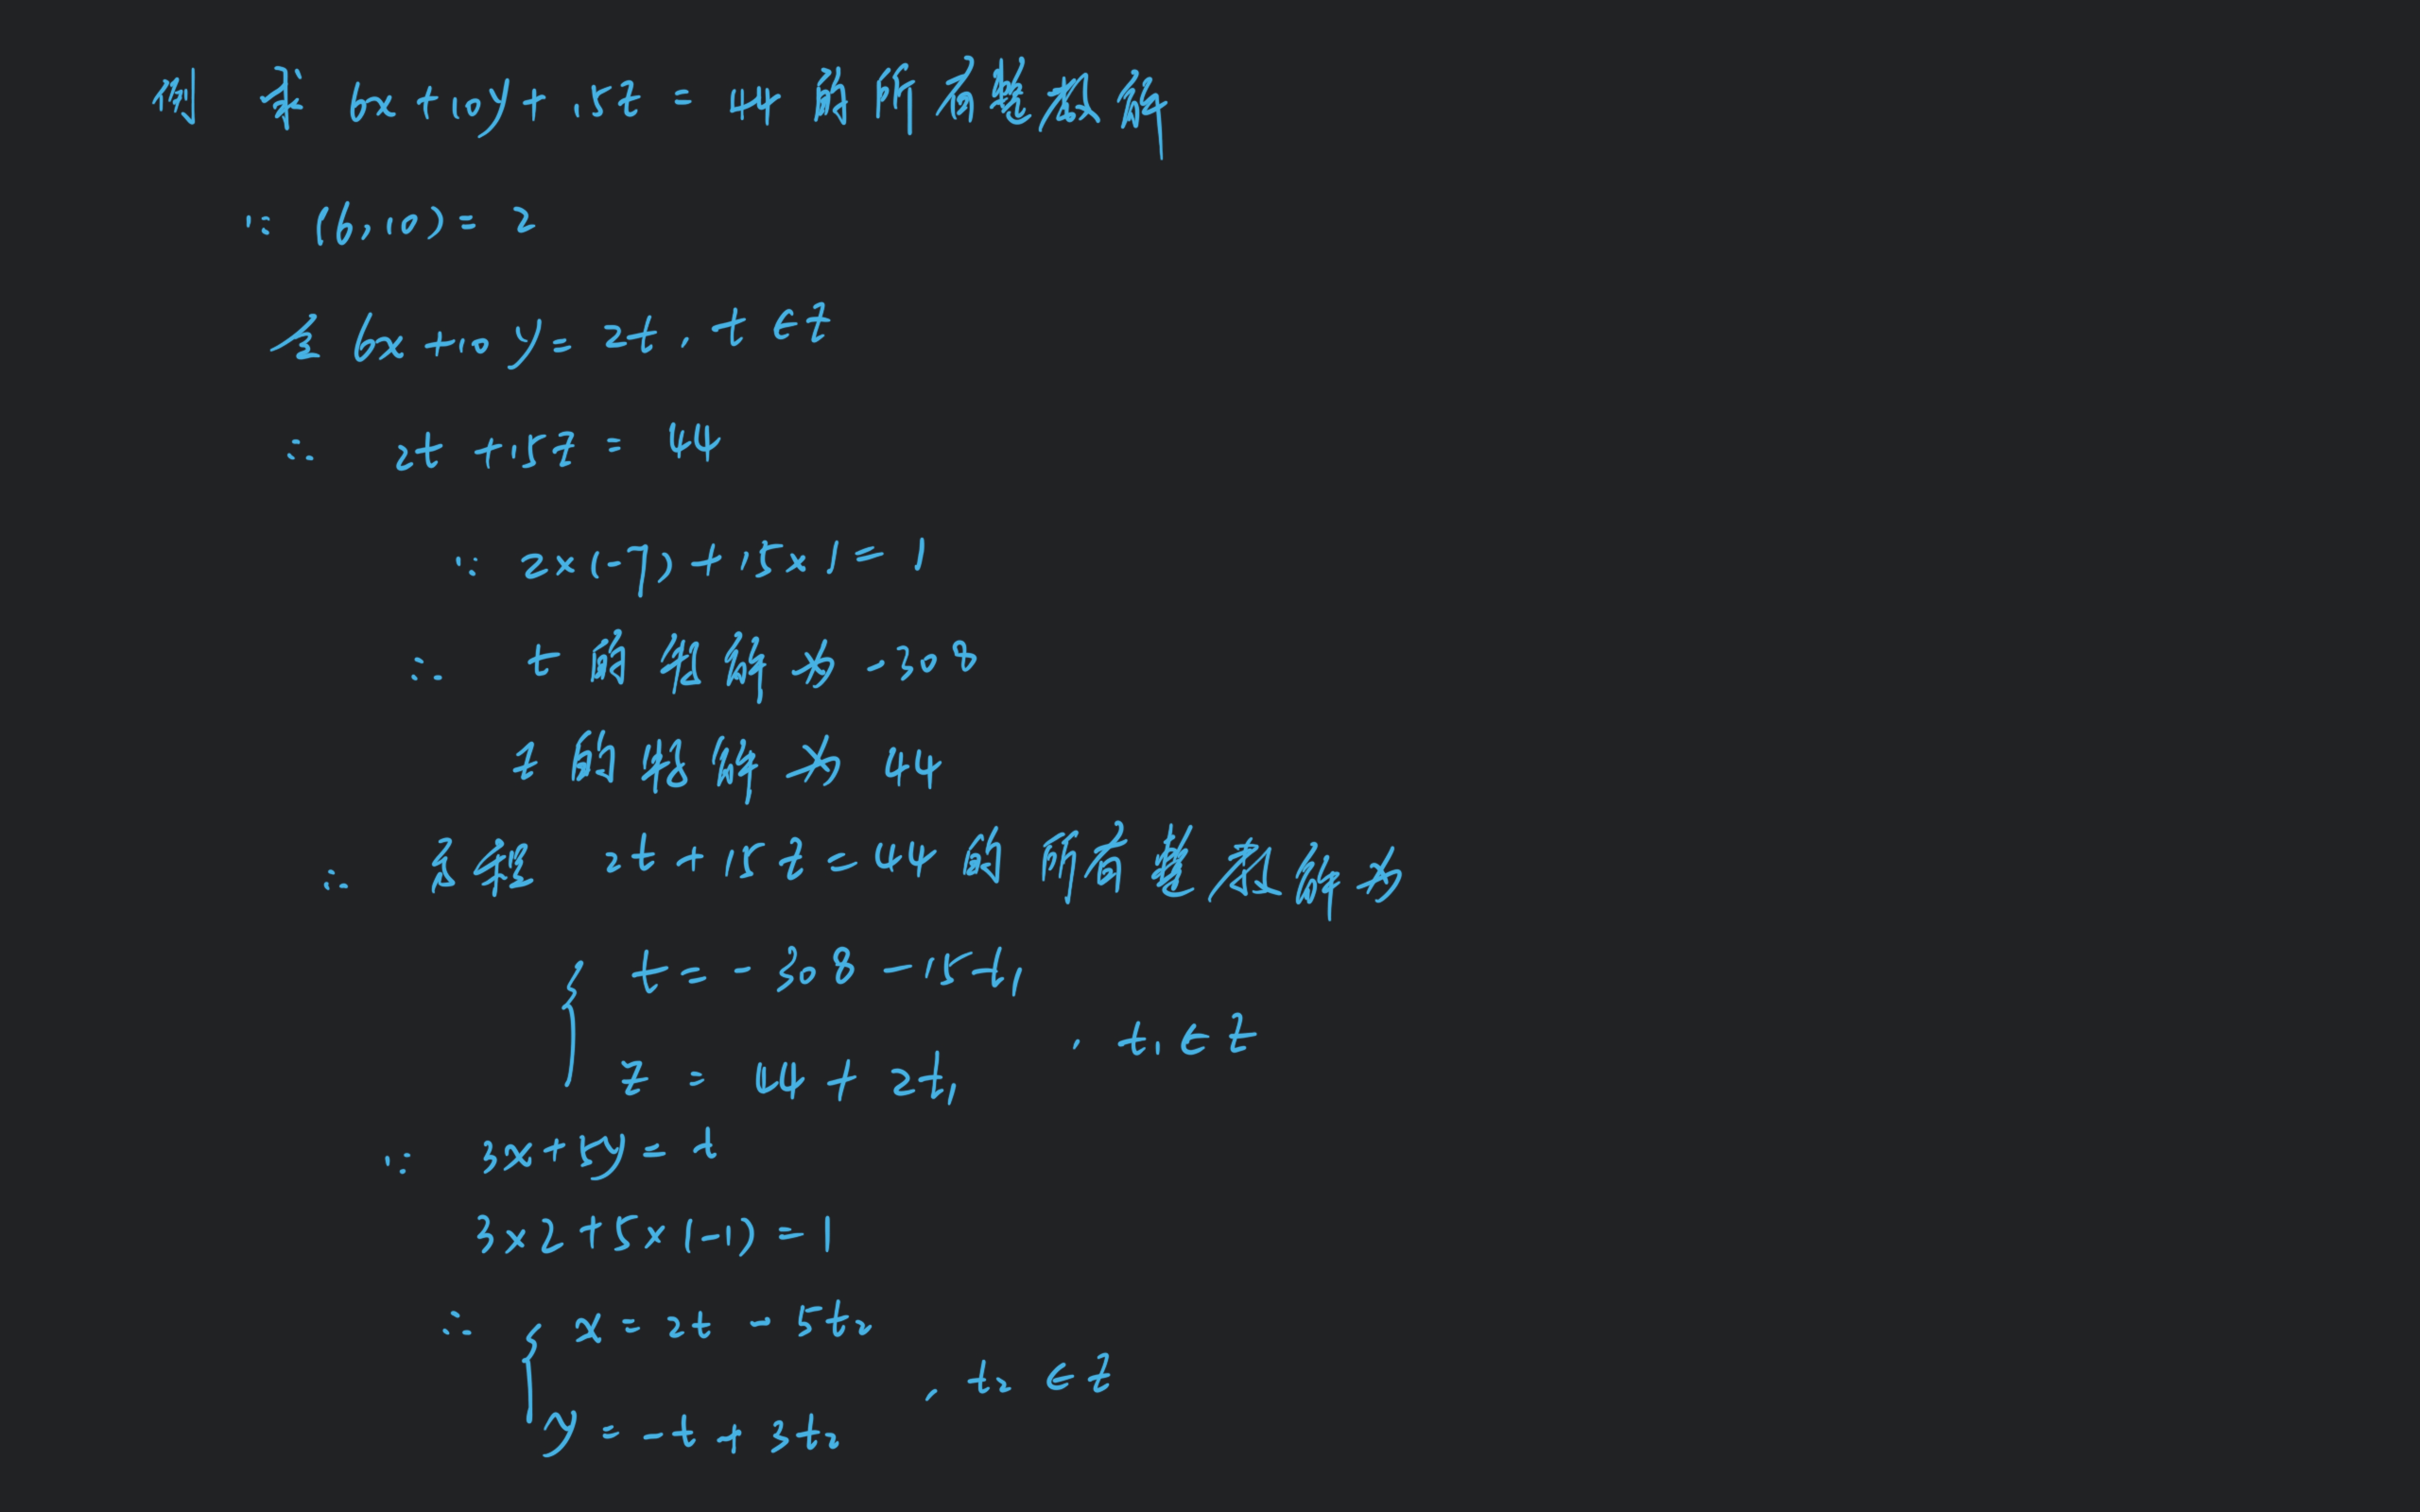 例 求 6x+10y+15z=44 的所有整数解
∵ (6,10)=2
令 6x+10y=2t, t∈Z
∴ 2t+15z=44
∵ 2×(-7)+15×1=1
∴ t的特解为-308
z的特解为 44
∴ 方程 2t+15z=44 的所有整数解为
{ t=-308-15t₁
, t₁∈Z
z=44+2t₁
∵ 3x+5y=t
3×2+5×(-1)=1
∴ { x=2t-5t₂
, t₂∈Z
y=-t+3t₂